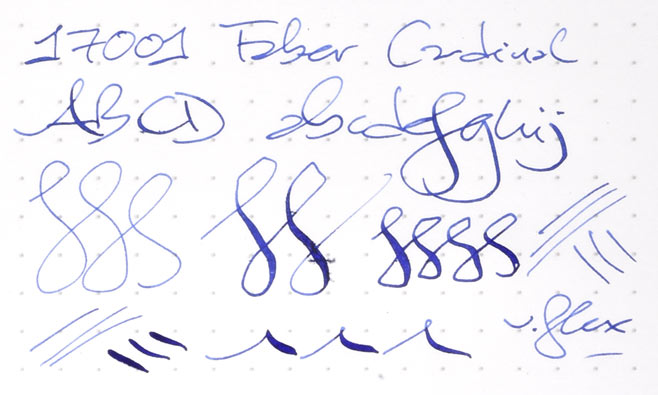 17001 Faber Cardinal
ABCD abcdefghij
v. flex